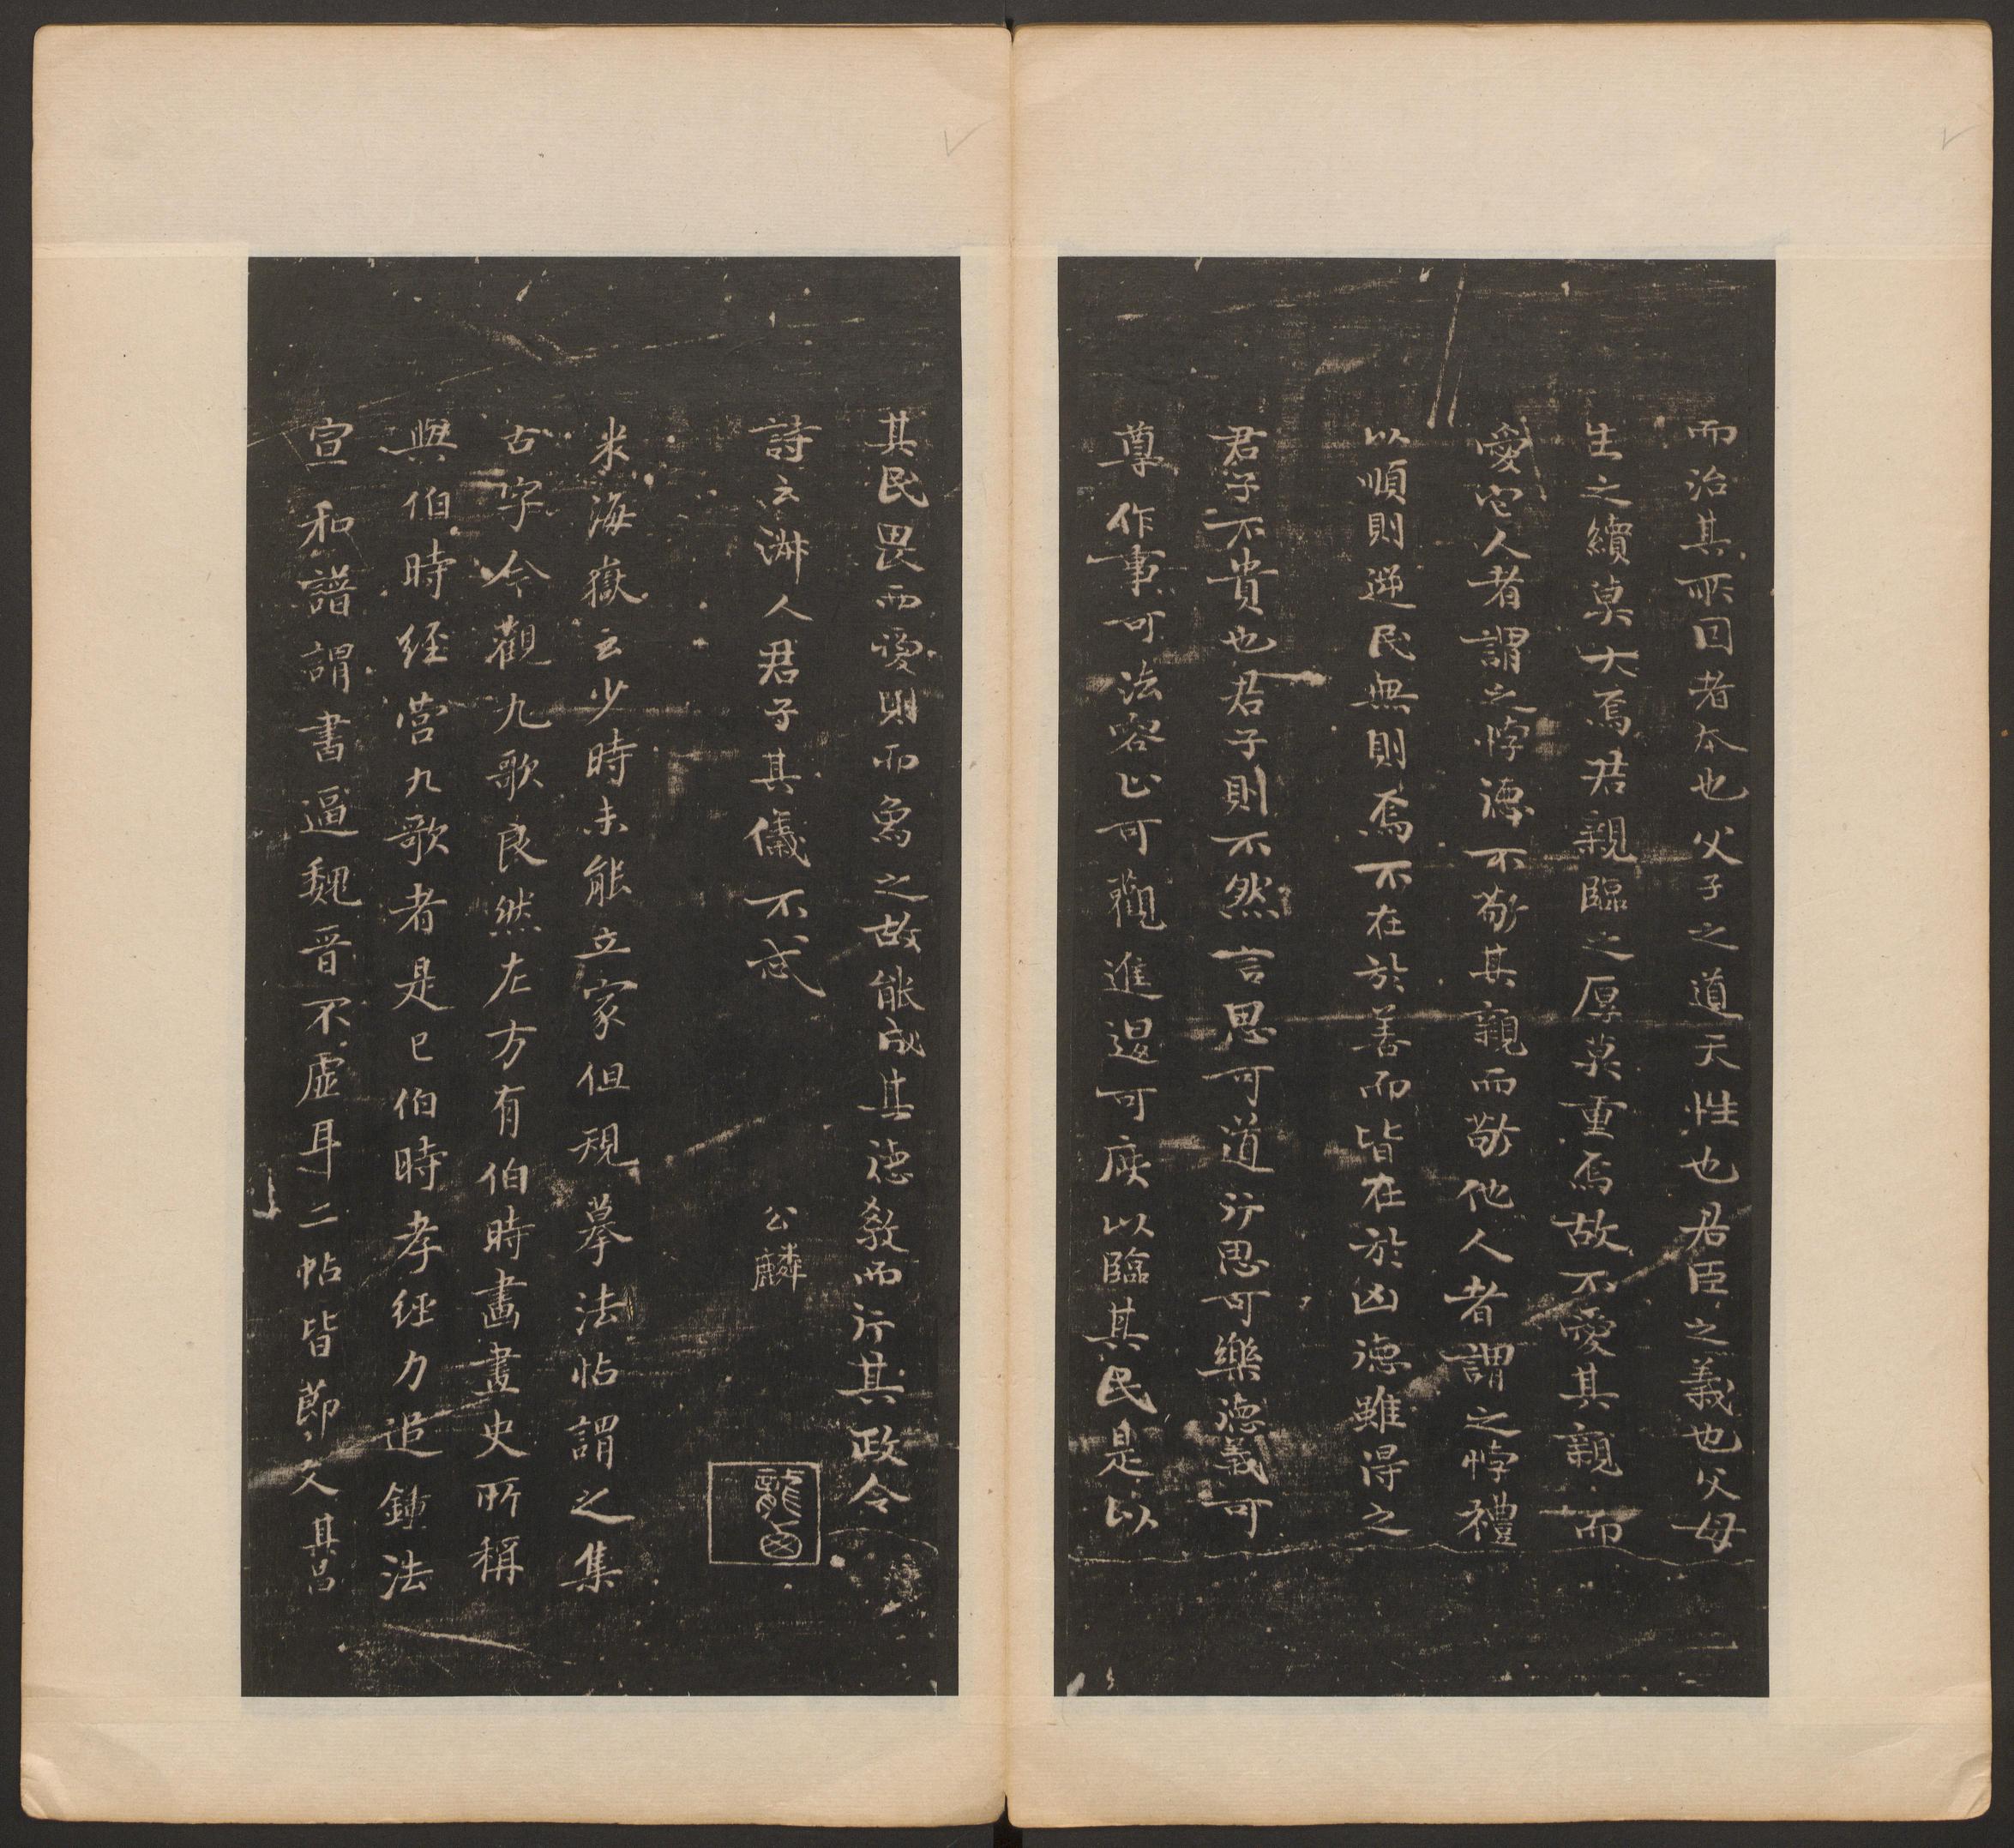 而治其所因者本也父子之道天性也君臣之義也父母
生之續莫大焉君親臨之厚莫重焉故不愛其親而
愛它人者謂之悖德不敬其親而敬他人者謂之悖禮
以順則逆民無則焉不在於善而皆在於凶德雖得之
君子不貴也君子則不然言思可道行思可樂德義可
尊作事可法容止可觀進退可度以臨其民是以
其民畏而愛則而象之故能成其德教而行其政令
詩云淑人君子其儀不忒
公麟
米海嶽云少時未能立家但規摹法帖謂之集
古字今觀九歌良然左方有伯時畫畫史所稱
與伯時経营九歌者是已伯時孝經力追鍾法
宣和譜謂書逼魏晉不虛耳二帖皆節文其昌